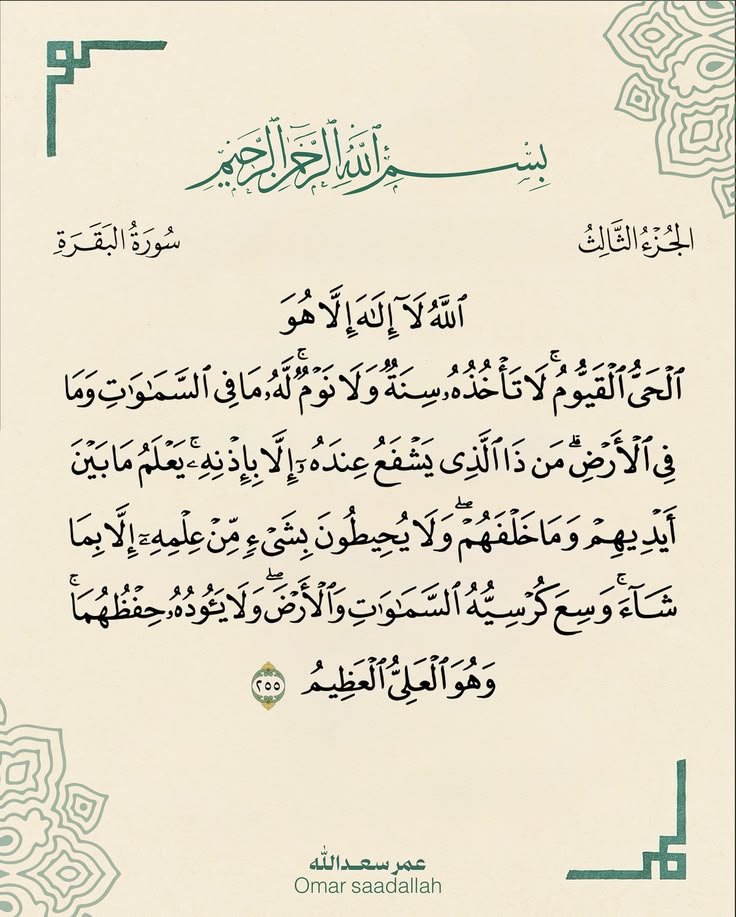 بِسْمِ ٱللَّهِ ٱلرَّحْمَٰنِ ٱلرَّحِيمِ
الجُزْءُ الثَّالِثُ
سُورَةُ البَقَرَةِ
ٱللَّهُ لَآ إِلَٰهَ إِلَّا هُوَ
ٱلْحَىُّ ٱلْقَيُّومُ ۚ لَا تَأْخُذُهُۥ سِنَةٌ وَلَا نَوْمٌ ۚ لَّهُۥ مَا فِى ٱلسَّمَٰوَٰتِ وَمَا
فِى ٱلْأَرْضِ ۗ مَن ذَا ٱلَّذِى يَشْفَعُ عِندَهُۥٓ إِلَّا بِإِذْنِهِۦ ۚ يَعْلَمُ مَا بَيْنَ
أَيْدِيهِمْ وَمَا خَلْفَهُمْ ۖ وَلَا يُحِيطُونَ بِشَىْءٍ مِّنْ عِلْمِهِۦٓ إِلَّا بِمَا
شَآءَ ۚ وَسِعَ كُرْسِيُّهُ ٱلسَّمَٰوَٰتِ وَٱلْأَرْضَ ۖ وَلَا يَـُٔودُهُۥ حِفْظُهُمَا ۚ
وَهُوَ ٱلْعَلِىُّ ٱلْعَظِيمُ ٢٥٥
عمر سعدالله
Omar saadallah